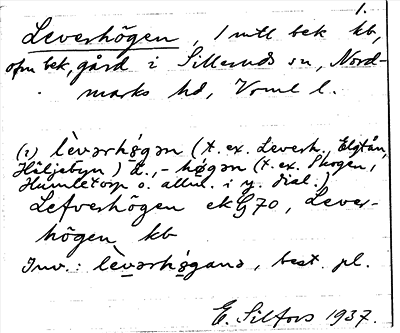 1.
Leverhögen, 1 mtl bek kb,
ofm bek, gård i Silleruds sn, Nord-
marks hd, Verml l.
(1) lèvərhø̀gən (t. ex. Leverh., Elgtån,
Häljebyn) el. -høgən (t. ex. Skogen,
Humletorp o. allm. i y. dial.)
Lefverhögen ekG70, Lever-
högen kb
Inv.: lèvərhøgana, best. pl.
E. Silfors 1937.